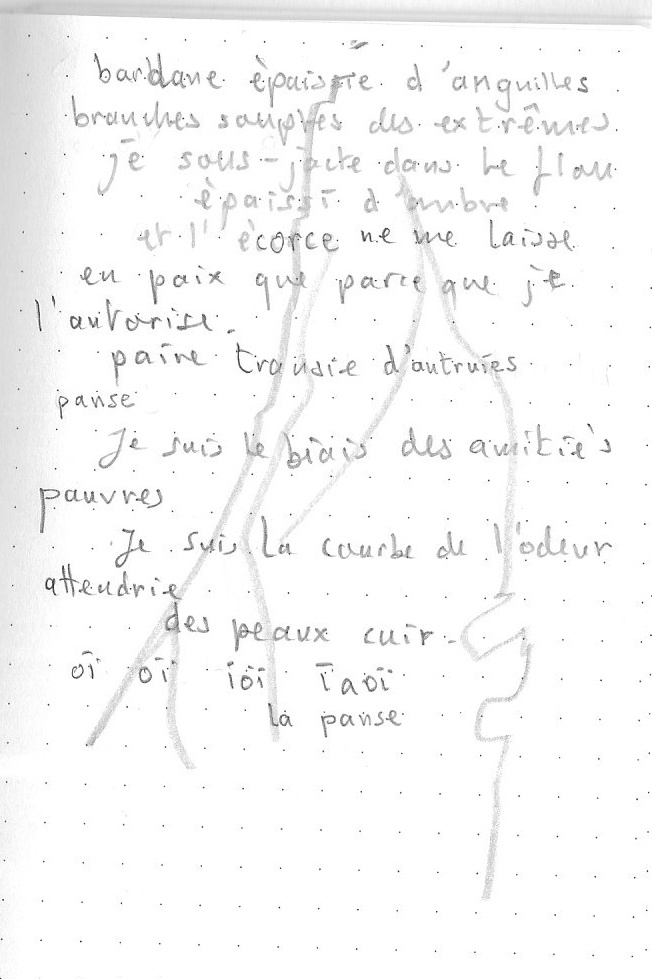 bardane épaissie d'anguilles
branches souples des extrêmes
je sous-jacte dans le flou
épaissi d'ombre
et l'écorce ne me laisse
en paix que parce que je
l'autorise.
païne transie d'autruies
panse
Je suis le biais des amitiés
pauvres
Je suis la courbe de l'odeur
attendrie
des peaux cuir.
oï oï ïoï ïaoï
la panse